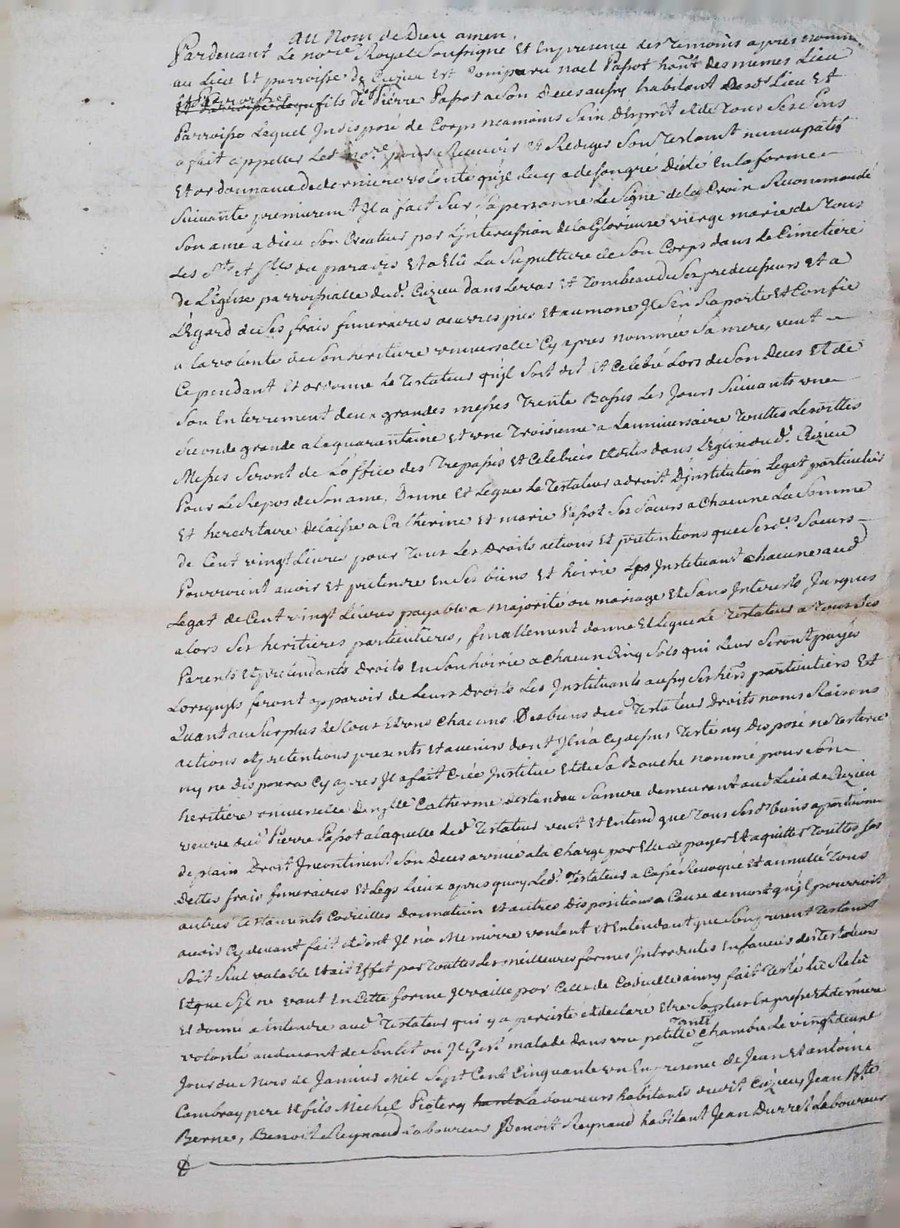 au Nom de Dieu amen,
Pardevant Le no.re Royal Soussigné Et En presence des temoins apres nommés
au Lieu Et parroisse de Cuzieu Est Comparu noel Papot han.t des memes Lieu
Et Parroisse fils de Pierre Papot a Son Deces aussy habitant desd. Lieu Et
Parroisse Lequel Indisposé de Corps neamoins Sain d'Esprit et de Tous Ses Sens
a fait appeller Led. no.re pour Recevoir Et Rediger Son Testam.t nuncupatif
Et ordonnance de derniere volonté qu'il a de Son gré Dicté En la forme
Suivante premierem.t Il a fait Sur Sa personne Le Signe de la Croix Recommandé
Son ame a Dieu Son Createur par L'intercession de la Glorieuse vierge marie de Tous
Les S.ts et S.tes du paradis Et a Elû La Sepulture de Son Corps dans Le Cimetiere
de L'église parroissialle dud. Cuzieu dans Le vas Et Tombeau de Ses predecesseurs Et a
L'Egard de Ses frais funeraires oeuvres pies Et aumone Il S'en Raporte Et Confie
a la volonte de Son heritiere universelle Cy apres nommée Sa mere, veut
Cependant Et ordonne Le Testateur qu'il Soit dit Et Celebré Lors de Son Deces Et de
Son Enterrement deux grandes messes Trente Basses Les Jours Suivants une
Seconde grande a la quarantaine Et une Troisieme a L'anniversaire Touttes Lesdittes
Messes Seront de L'office des Trepassés Et Celebrées Et dites dans L'Eglise dud. Cuzieu
Pour Le Repos de Son ame. Donne Et Legue Le Testateur a droit D'institution Legat particuliere
Et hereditaire delaisse a Catherine Et marie Papot Ses Soeurs a Chacune La Somme
de Cent vingt Livres pour Tous Les Droits actions Et pretentions que Sesd.es Soeurs
Pourroient avoir Et pretendre En Ses biens Et hoirie Les Instituant Chacune aud.
Legat de Cent vingt Livres payable a majorité ou mariage Et Sans Interests Jusques
alors Ses heritieres particulieres, finallement donne Et Legue Le Testateur a Tous Ses
Parents Et pretendants Droits En Son hoirie a Chacun Cinq Sols qui Leur Seront payés
Lorsqu'ils feront apparoir de Leurs Droits Les Instituants aussy Ses her.s particuliers Et
Quant au Surplus de Tous Et uns Chacuns Des biens dud. Testateur Droits noms Raisons
actions Et pretentions presents Et avenirs dont Il n'a Cy dessus Testé ny Disposé ne Testera
ny ne disposera Cy apres Il a fait Créé Institue Et de Sa Bouche nommé pour Son
heritiere universelle Catherine Sa mere demeurant aud. Lieu de Cuzieu
veuve dud. Pierre Papot a laquelle Led. Testateur veut Et Entend que Tous Sesd. biens apartienne
de plain Droit Incontinent Son Deces arrivé a la Charge par Elle de payer Et aquitter Touttes Ses
Dettes frais funeraires Et Legs apres quoy Led. Testateur a Cassé Revoqué Et annullé Tous
autres Testaments Codicilles donnation Et autres Dispositions a Cause de mort qu'il pourroit
avoir Cy devant fait Et dont Il n'a Memoire voulant Et Entendant que Son present Testam.t
Soit Seul valable Et ait Effet par Touttes Les meilleures formes
Et que S'il ne vaut En Cette forme Il vaille par Celle de Codicille ainsy fait Testé Lû Relu
Et donné a Entendre aud. Testateur qui y a persisté Et declaré Etre Sa derniere
volonté audevant de Son Lit ou Il Gist malade dans une petitte Chambre Le vingt deux
Jour du Mois de Janvier Mil Sept Cent Cinquante un En presence de Jean Et antoine
Combray pere Et fils Michel Laboureurs habitants dudit Cuzieu, Jean B.te
Berne, Benoit Reynaud Laboureur Benoit Reynaud habitant Jean Durret Laboureur